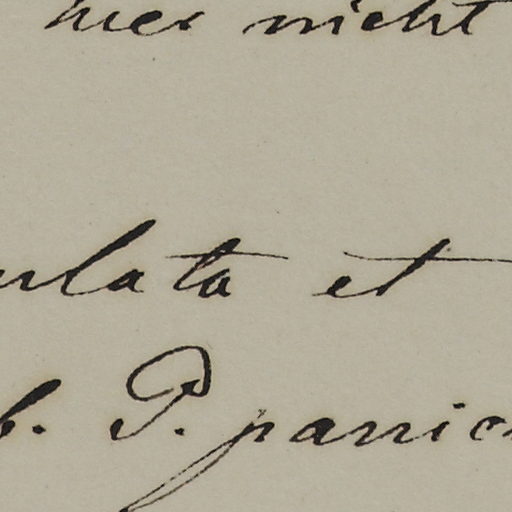 hier nicht
ulata et
b. P. panic